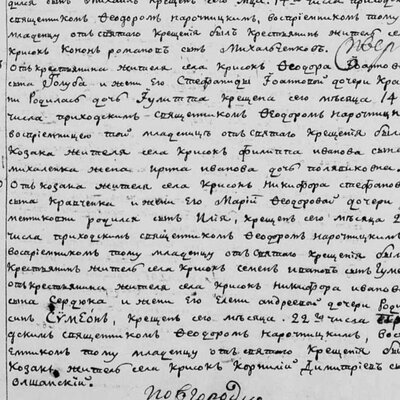 дился сынъ Михаилъ крещенъ
священникомъ Феодоромъ Нарочницкимъ, воспріемникомъ тому
младенцу отъ святаго крещенія былъ крестьянинъ житель се
Крисокъ Кононъ Романовъ сынъ Михальченковъ.
Отъ крестьянина жителя села Крисокъ Феодора
сына Голуба и жены его Стефаниды Іоанновой дочери
родилась дочь Гулитта крещена сего мѣсяца 14
числа приходскимъ священникомъ Феодоромъ Нарочницк
воспріемницею той младеницѣ отъ святаго крещенія бы
козака жителя села Крисокъ Филиппа Иванова сына
Михаленка жена Ирина Иванова дочь
Отъ козака жителя села Крисокъ Никифора Стефанова
сына Кравченка и жены его Маріи Феодоровой дочери
родился сынъ Илія, крещенъ сего мѣсяца 2
числа приходскимъ священникомъ Феодоромъ Нарочницким
воспріемникомъ тому младенцу отъ святаго крещенія бы
крестьянинъ житель села Крисокъ Семенъ Ивановъ сынъ
Отъ крестьянина жителя села Крисокъ Никифора Иванова
сына Сердюка и жены его Елены Андреевой дочери роди
сынъ Сѵмеонъ, крещенъ сего мѣсяца 22 числа
дскимъ священникомъ Феодоромъ Нарочницкимъ, вос
емникомъ тому младенцу отъ святаго крещенія бы
козакъ житель села Крисокъ Корнилій Димитріевъ сы
Волшанскій.